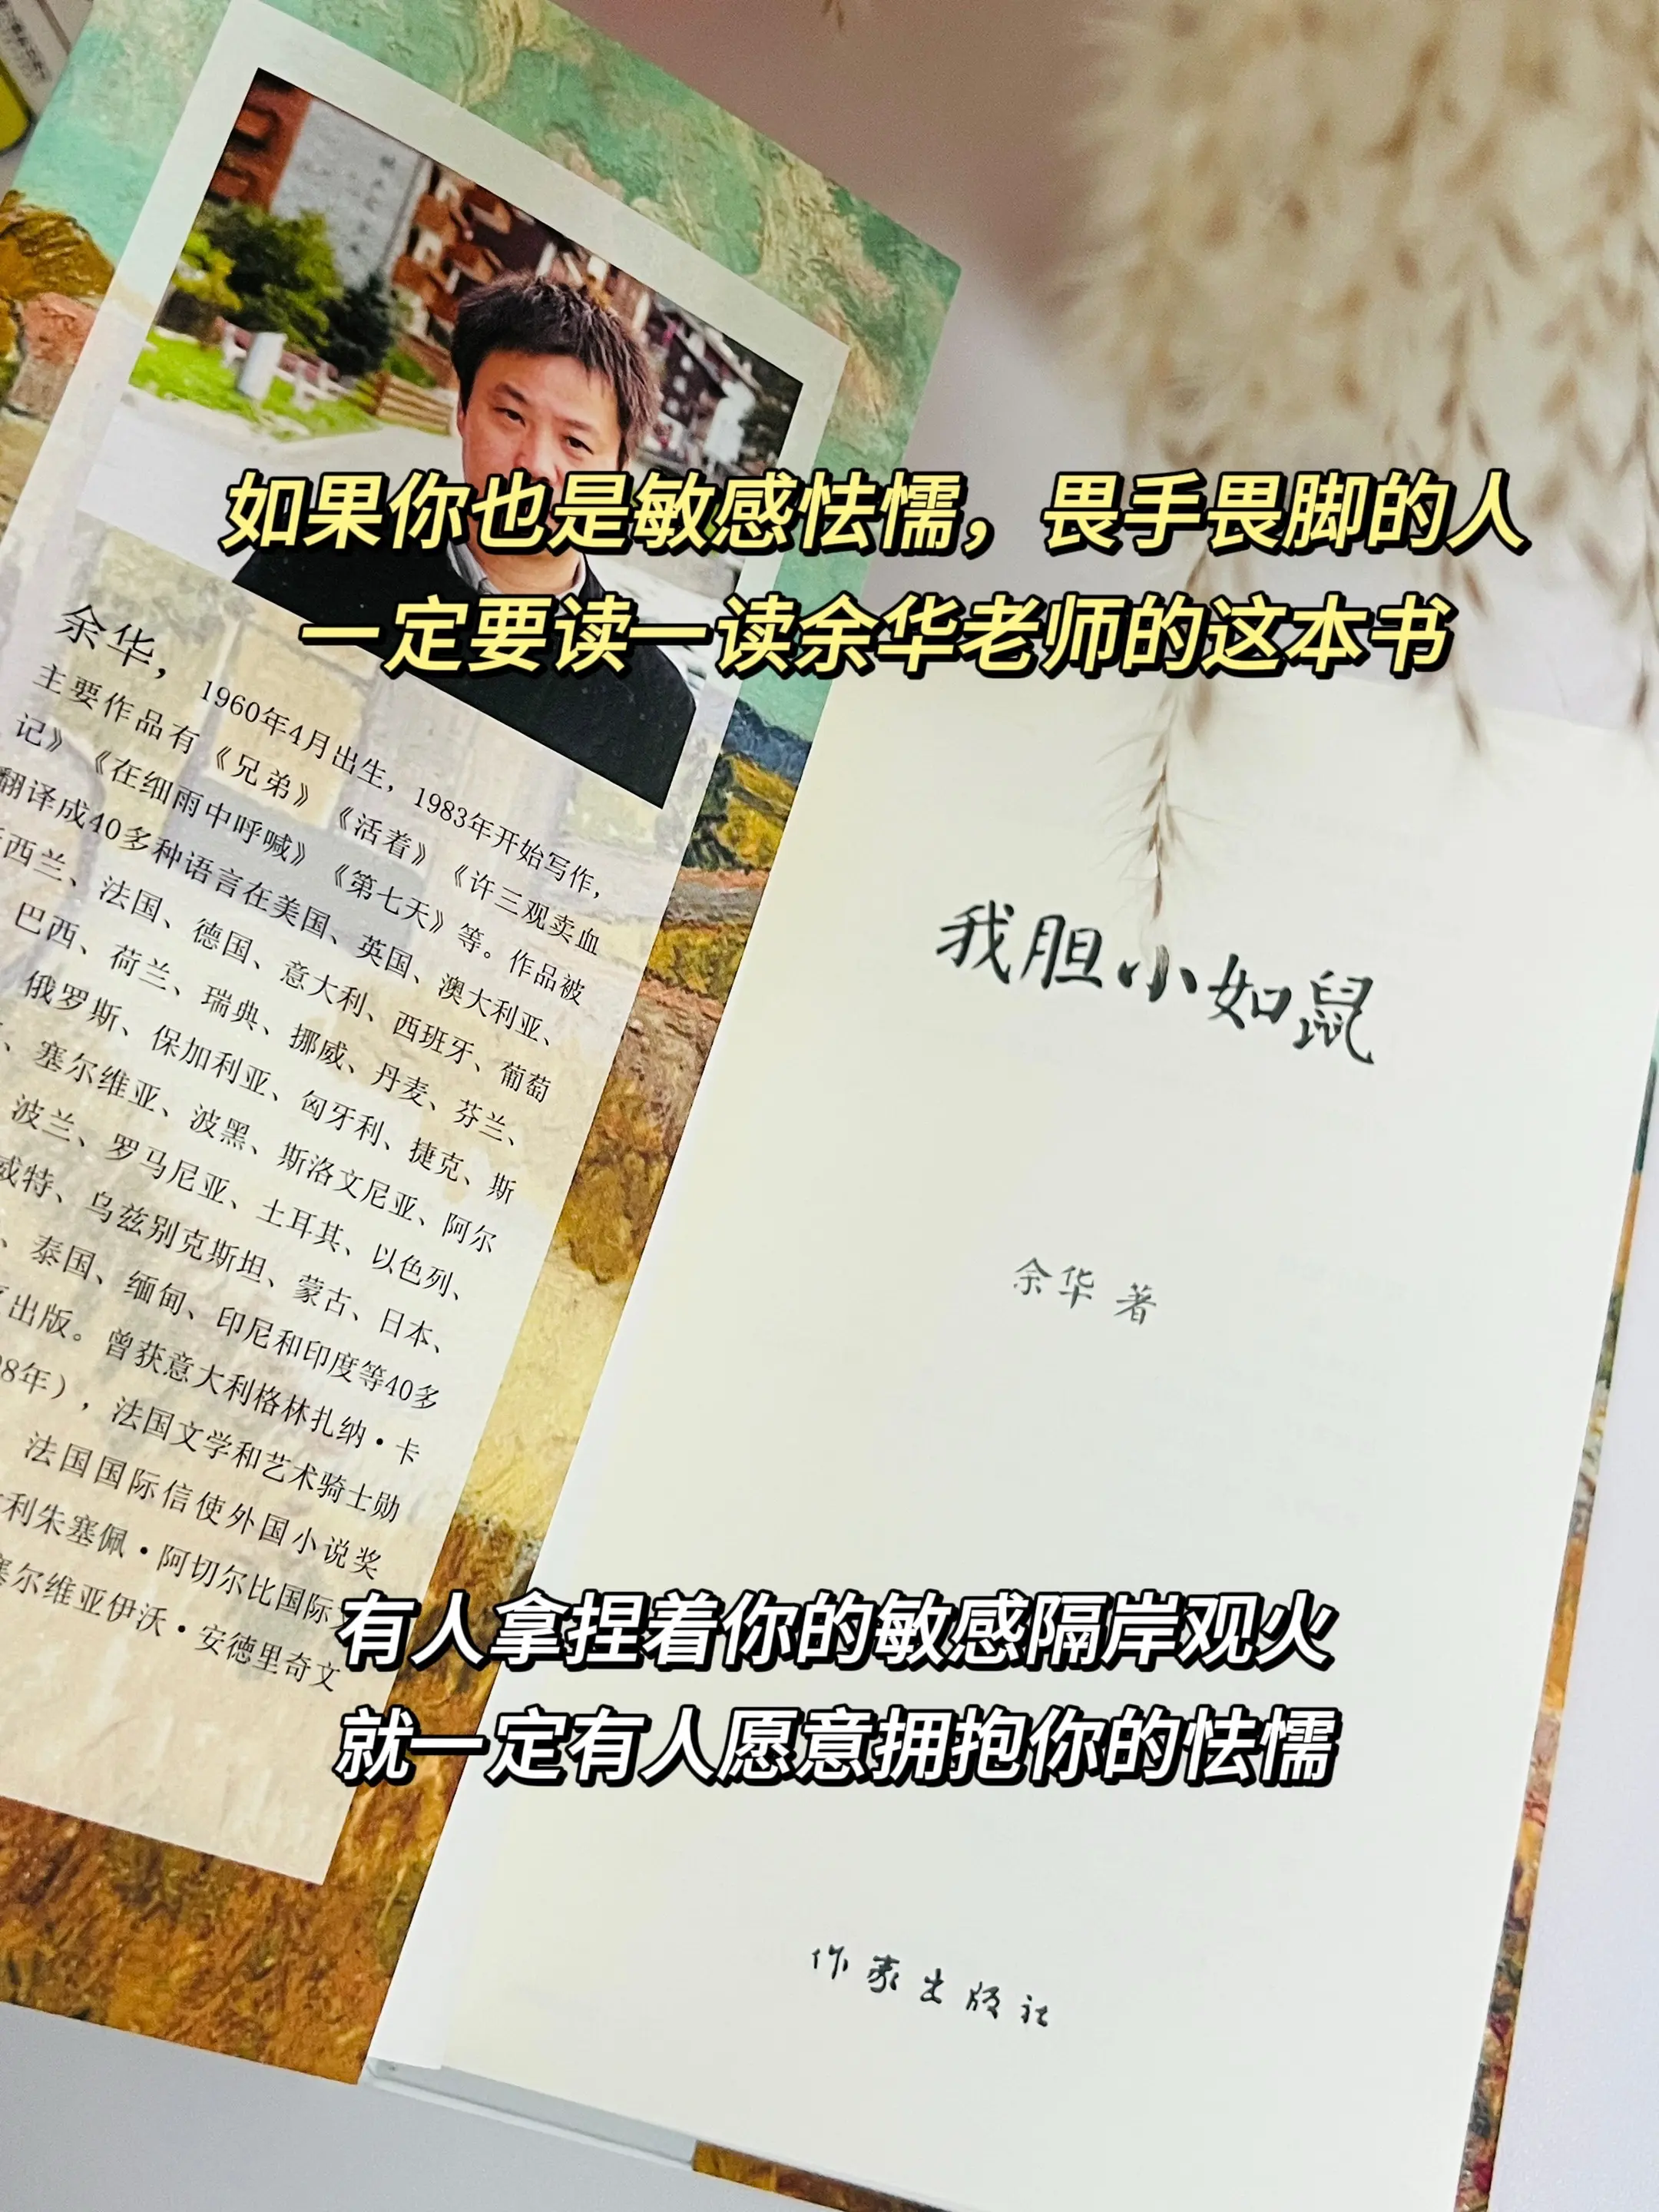 如果你也是敏感怯懦，畏手畏脚的人
一定要读一读余华老师的这本书
余华，
1960年4月出生，1983年开始写作，
主要作品有《兄弟》《活着》《许三观卖血
记》《在细雨中呼喊》《第七天》等。作品被
翻译成40多种语言在美国、英国、澳大利亚、
西兰、法国、德国、意大利、西班牙、葡萄
巴西、荷兰、瑞典、挪威、丹麦、芬兰、
俄罗斯、保加利亚、匈牙利、捷克、斯
、塞尔维亚、波黑、斯洛文尼亚、阿尔
波兰、罗马尼亚、土耳其、以色列、
威特、乌兹别克斯坦、蒙古、日本、
、泰国、缅甸、印尼和印度等40多
出版。曾获意大利格林扎纳·卡
8年），法国文学和艺术骑士勋
法国国际信使外国小说奖
利朱塞佩·阿切尔比国际
塞尔维亚伊沃·安德里奇文
我胆小如鼠
余华 著
有人拿捏着你的敏感隔岸观火
就一定有人愿意拥抱你的怯懦
作家出版社